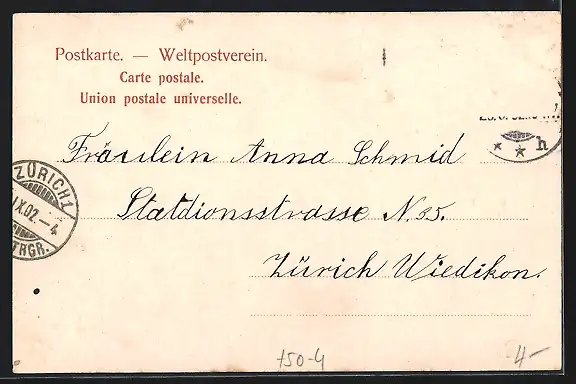 Postkarte. — Weltpostverein.
Carte postale.
Union postale universelle.
Fräulein Anna Schmid
Statdionsstrasse N. 35.
Zürich Wiedikon.
ZÜRICH 1
IX.02.–4
TRGR.
h
150-4
4-